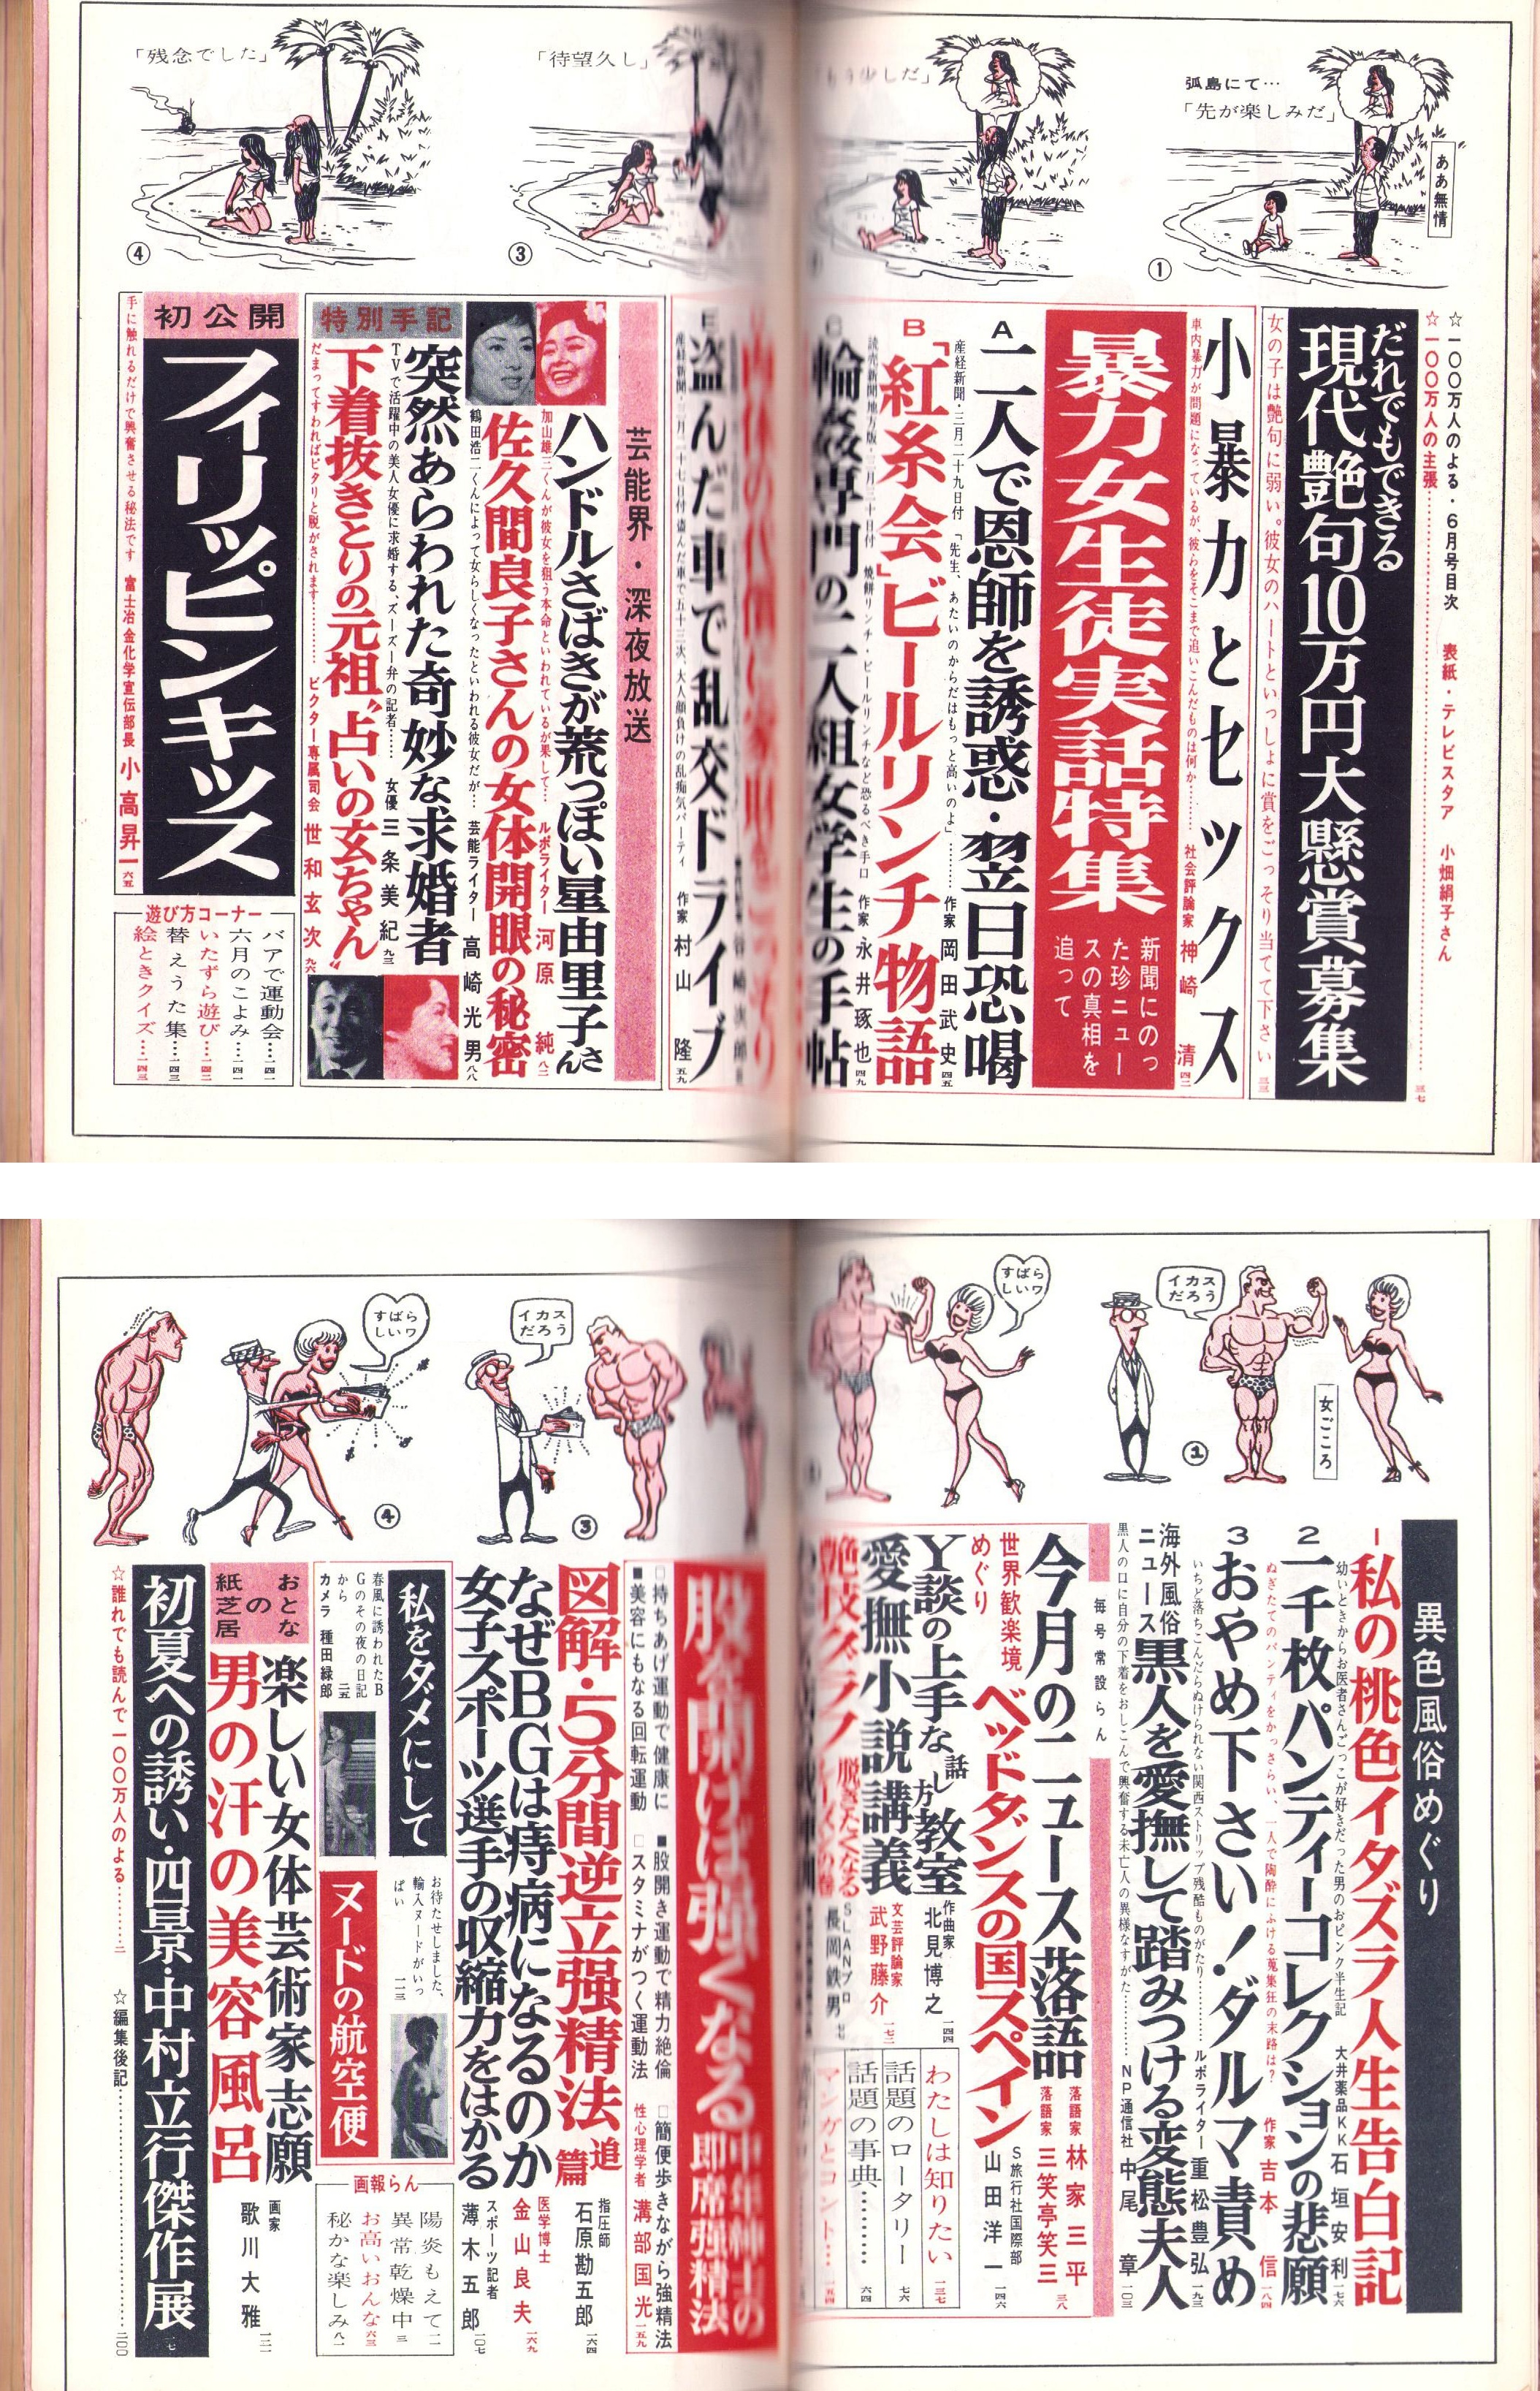 弧島にて…
「先が楽しみだ」
ああ無情
①
もう少しだ」
「待望久し」
③
「残念でした」
④
☆一〇〇万人のよる・6月号目次　表紙・テレビスタア　小畑絹子さん
☆一〇〇万人の主張…………三七
だれでもできる
現代艶句10万円大懸賞募集
女の子は艶句に弱い。彼女のハートといっしょに賞をごっそり当てて下さい　三三
小暴力とセックス
車内暴力が問題になっているが、彼らをそこまで追いこんだものは何か……　社会評論家　神崎　清　四二
暴力女生徒実話特集
新聞にのっ
た珍ニュー
スの真相を
追って
A
二人で恩師を誘惑・翌日恐喝
産経新聞・三月二十九日付　「先生、あたいのからだはもっと高いのよ」………　作家　岡田武史　四五
B
「紅糸会」ビールリンチ物語
読売新聞地方版・三月三十日付　焼餅リンチ・ビールリンチなど恐るべき手口　作家　永井琢也　四九
輪姦専門の二人組女学生の手帖
盗んだ車で乱交ドライブ
盗んだ車で五十三次、大人顔負けの乱痴気パーティ　作家　村山　隆　五九
芸能界・深夜放送
ハンドルさばきが荒っぽい星由里子さん
加山雄三くんが彼女を狙う本命といわれているが果して…　ルポライター　河原　純　八二
佐久間良子さんの女体開眼の秘密
鶴田浩二くんによって女らしくなったといわれる彼女だが…　芸能ライター　高崎光男　八八
特別手記
突然あらわれた奇妙な求婚者
TVで活躍中の美人女優に求婚する、ズーズー弁の記者……　女優　三条美紀　九三
下着抜きとりの元祖〝占いの玄ちゃん〟
だまってすわればピタリと脱がされます………　ビクター専属司会　世和玄次　九六
初公開
フィリッピンキッス
手に触れるだけで興奮させる秘法です　富士冶金化学宣伝部長　小高昇一　六五
遊び方コーナー
バアで運動会…一四一
六月のこよみ…一四一
いたずら遊び…一四二
替えうた集…一四三
絵ときクイズ…一四三
女ごころ
イカス
だろう
①
すばら
しいワ
イカス
だろう
③
すばら
しいワ
④
異色風俗めぐり
1
私の桃色イタズラ人生告白記
幼いときからお医者さんごっこが好きだった男のおピンク半生記　大井薬品KK　石垣安利　一七六
2
一千枚パンティーコレクションの悲願
ぬぎたてのパンティをかっさらい、一人で陶酔にふける蒐集狂の末路は？　作家　吉本　信　一八四
3
おやめ下さい！ダルマ責め
いちど落ちこんだらぬけられない関西ストリップ残酷ものがたり……　ルポライター　重松豊弘　一九三
海外風俗
ニュース
黒人を愛撫して踏みつける変態夫人
黒人の口に自分の下着をおしこんで興奮する未亡人の異様なすがた………　NP通信社　中尾　章　一〇三
毎号常設らん
今月のニュース落語
落語家　林家三平
落語家　三笑亭笑三　三八
世界歓楽境
めぐり
ベッドダンスの国スペイン
S旅行社国際部　山田洋一　一四六
Y談の上手な話し方教室
作曲家　北見博之　一四四
愛撫小説講義
文芸評論家　武野藤介　一七二
艶技グラフ
脱ぎたくなる
SLANプロ　長岡鉄男
わたしは知りたい　一三七
話題のロータリー　七六
話題の事典………六四
マンガとコント…一五四
股を開けば強くなる
中年紳士の
即席強精法
□持ちあげ運動で健康に　■股開き運動で精力絶倫　□簡便歩きながら強精法
■美容にもなる回転運動　□スタミナがつく運動法　性心理学者　溝部国光　一五九
図解・5分間逆立强精法　追篇
指圧師　石原勘五郎　一六四
なぜBGは痔病になるのか
医学博士　金山良夫　一六九
女子スポーツ選手の収縮力をはかる
スポーツ記者　薄木五郎　一〇七
私をダメにして
春風に誘われたB
Gのその夜の日記
から　二五
カメラ　種田緑郎
お待たせしました、
輸入ヌードがいっ
ぱい　一一三
ヌードの航空便
画報らん
陽炎もえて　一一
異常乾燥中　三
お高いおんな　六三
秘かな楽しみ　八一
おとな
の
紙芝居
楽しい女体芸術家志願
男の汗の美容風呂
画家　歌川大雅　一二一
初夏への誘い・四景・中村立行傑作展
☆誰れでも読んで一〇〇万人のよる………二　☆編集後記…………二〇〇